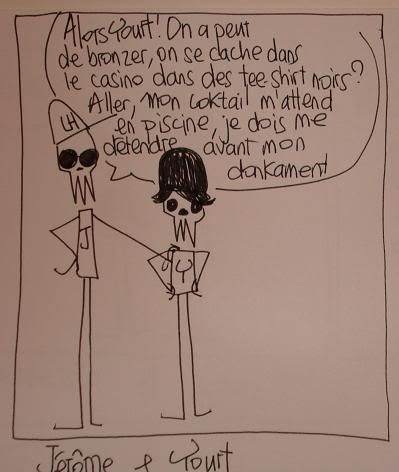 Alors Yourt! On a peut
de bronzer, on se cache dans
le casino dans des tee-shirt noirs?
Aller, mon coktail m'attend
en piscine, je dois me
détendre avant mon
donkament
LH
J
Y
Jérôme & Yourt